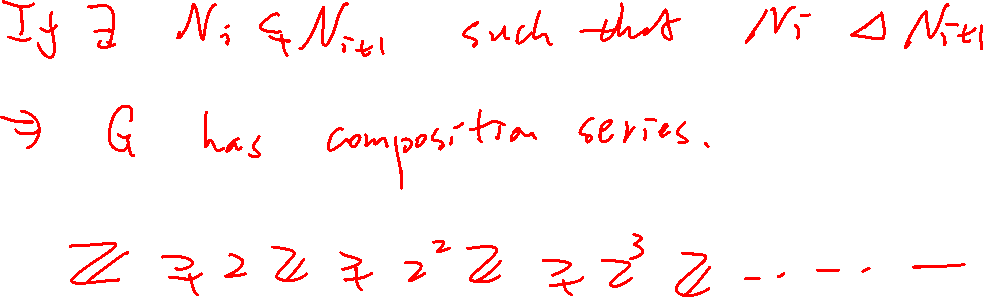 If ∃ Nᵢ ⊊ Nᵢ₊₁ such that Nᵢ ⊲ Nᵢ₊₁
⇒ G has composition series.
ℤ ⊋ 2ℤ ⊋ 2²ℤ ⊋ 2³ℤ ‐‐‐‐ —